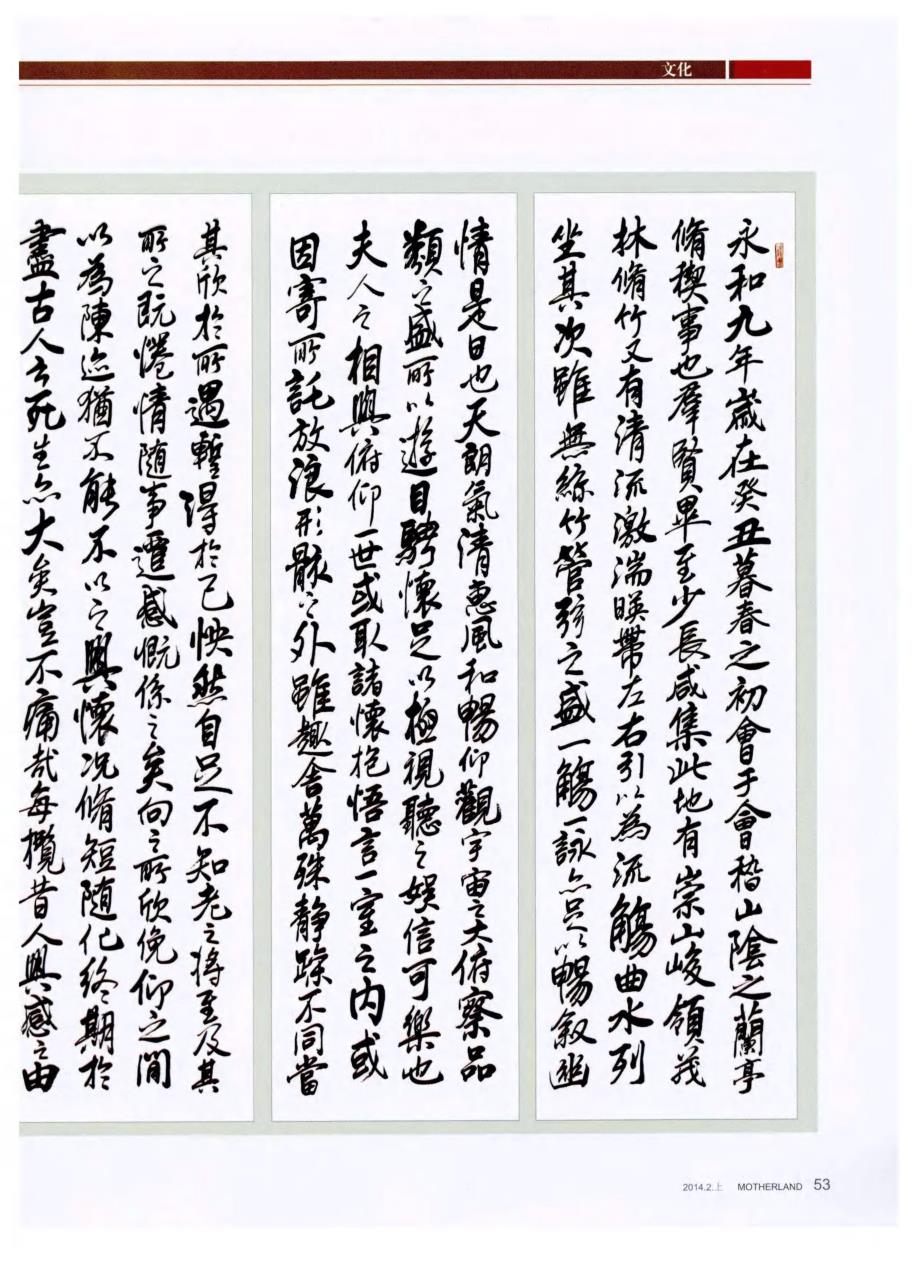 文化
永和九年歲在癸丑暮春之初會于會稽山陰之蘭亭
脩稧事也羣賢畢至少長咸集此地有崇山峻領茂
林脩竹又有清流激湍暎帶左右引以為流觴曲水列
坐其次雖無絲竹管弦之盛一觴一詠亦足以暢敘幽
情是日也天朗氣清惠風和暢仰觀宇宙之大俯察品
類之盛所以遊目騁懷足以極視聽之娛信可樂也
夫人之相與俯仰一世或取諸懷抱悟言一室之内或
因寄所託放浪形骸之外雖趣舍萬殊静躁不同當
其欣於所遇暫得於己怏然自足不知老之將至及其
所之既惓情随事遷感慨係之矣向之所欣俛仰之間
以為陳迹猶不能不以之興懷况脩短随化終期於
盡古人云死生亦大矣豈不痛哉每攬昔人興感之由
2014.2.上 MOTHERLAND 53